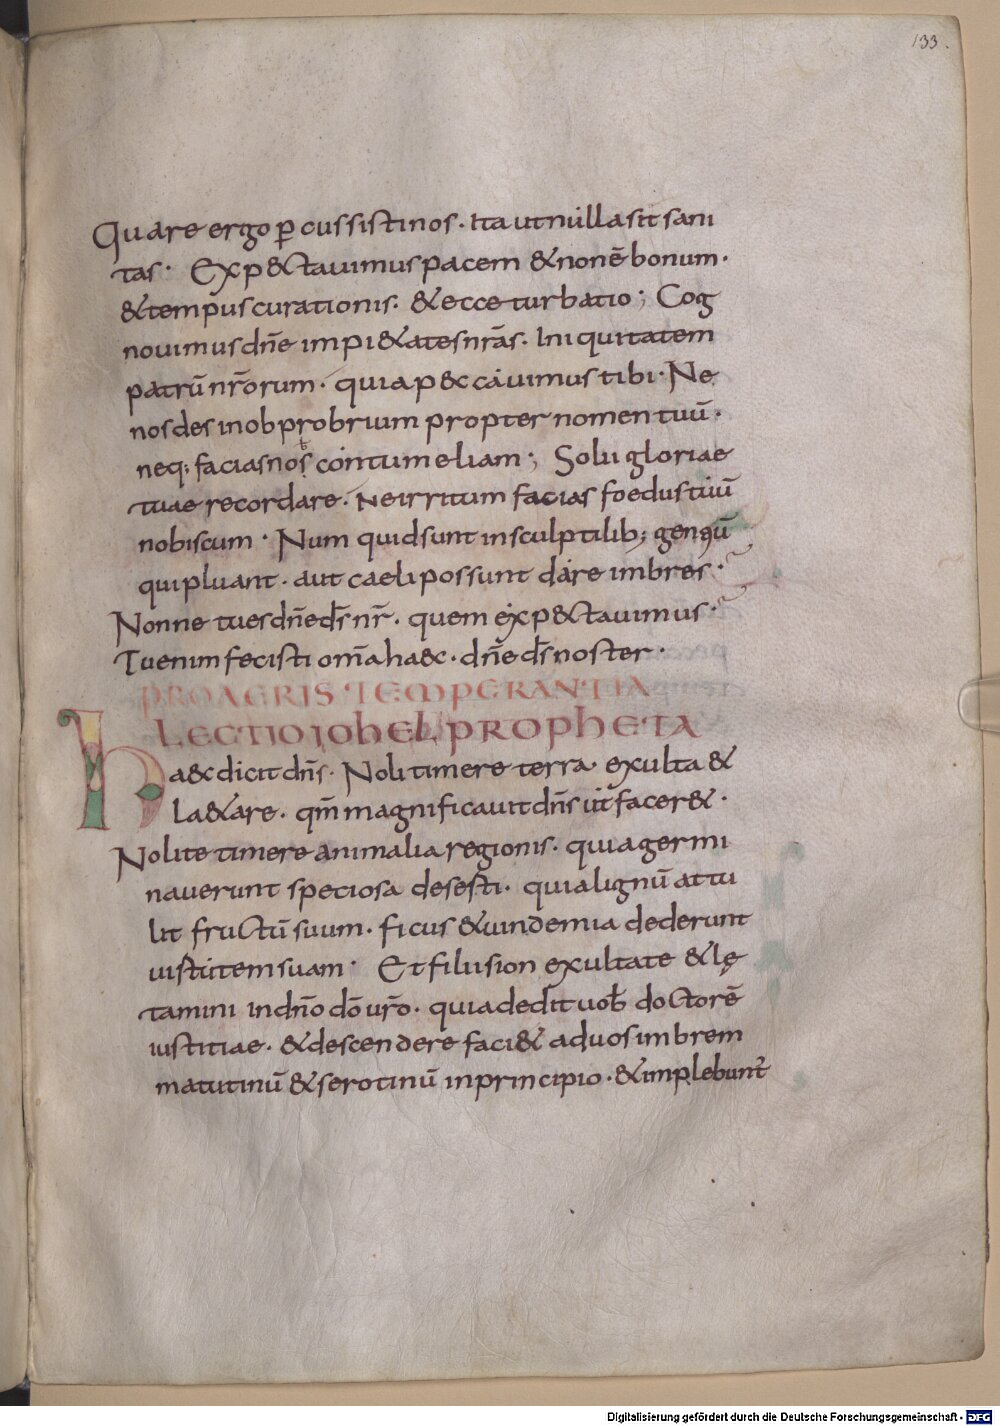 133.
Quare ergo p̱cussisti nos· Ita ut nulla sit sani
tas· Exp&ctauimus pacem & non ē bonum·
& tempus curationis· & ecce turbatio; Cog
nouimus dn̄e impi&ates nr̄as· Iniquitatem
patrū nr̄orum· quia p&cauimus tibi· Ne
nos des in obprobrium propter nomen tuū·
neq; facias nos contumeliam; Solii gloriae
tuae recordare· Ne irritum facias foedus tuū
nobiscum· Num quid sunt in sculptilib; gentiū
qui pluant· aut caeli possunt dare imbres·
Nonne tu es dn̄e ds̄ nr̄· quem exp&ctauimus·
Tu enim fecisti om̄a haec· dn̄e ds̄ noster·
PRO AERIS TEMPERANTIA
LECTIO IOHEL PROPHETA
Ha&c dicit dn̄s· Noli timere terra· exulta &
la&are· qm̄ magnificauit dn̄s ut facer&·
Nolite timere animalia regionis· quia germi
nauerunt speciosa deserti· quia lignū attu
lit fructū suum· ficus & uindemia dederunt
uirtutem suam· Et filii sion exultate & lę
tamini in dn̄o dō ur̄o· quia dedit uob̄ doctorē
iustitiae· & descendere faci& ad uos imbrem
matutinū & serotinū in principio· & implebunt̄
Digitalisierung gefördert durch die Deutsche Forschungsgemeinschaft - DFG